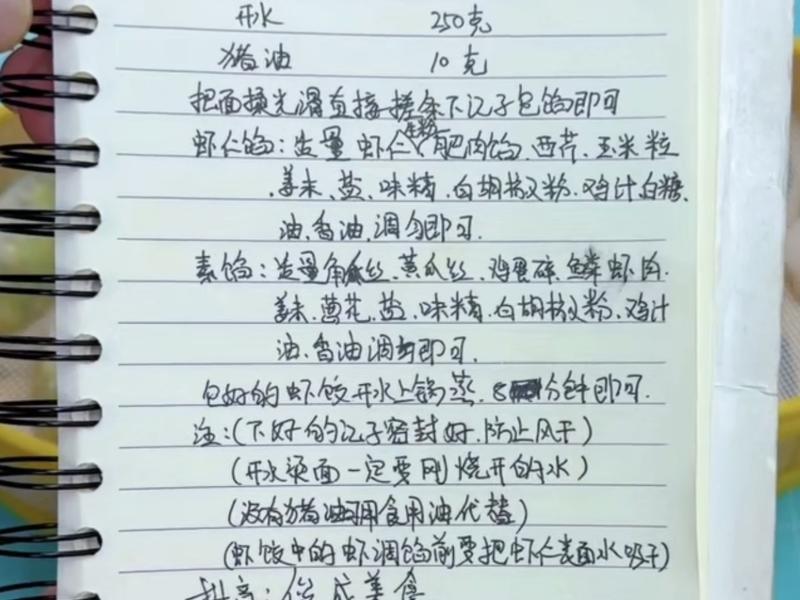 开水 250克
猪油 10克
把面揉光滑直接搓条下记子包馅即可
虾仁馅:适量虾仁、生粉、肥肉馅、西芹、玉米粒
、姜末、盐、味精、白胡椒粉、鸡汁白糖、
油、香油、调匀即可.
素馅:适量角瓜丝、黄瓜丝、鸡蛋碎、鳞虾肉、
姜末、葱花、盐、味精、白胡椒粉、鸡汁
油、香油调匀即可.
包好的虾饺开水上锅蒸、8分钟即可.
注:(下好的记子密封好、防止风干)
(开水烫面一定要刚烧开的水)
(没有猪油可用食用油代替)
(虾饺中的虾调馅前要把虾仁表面水吸干)
美食